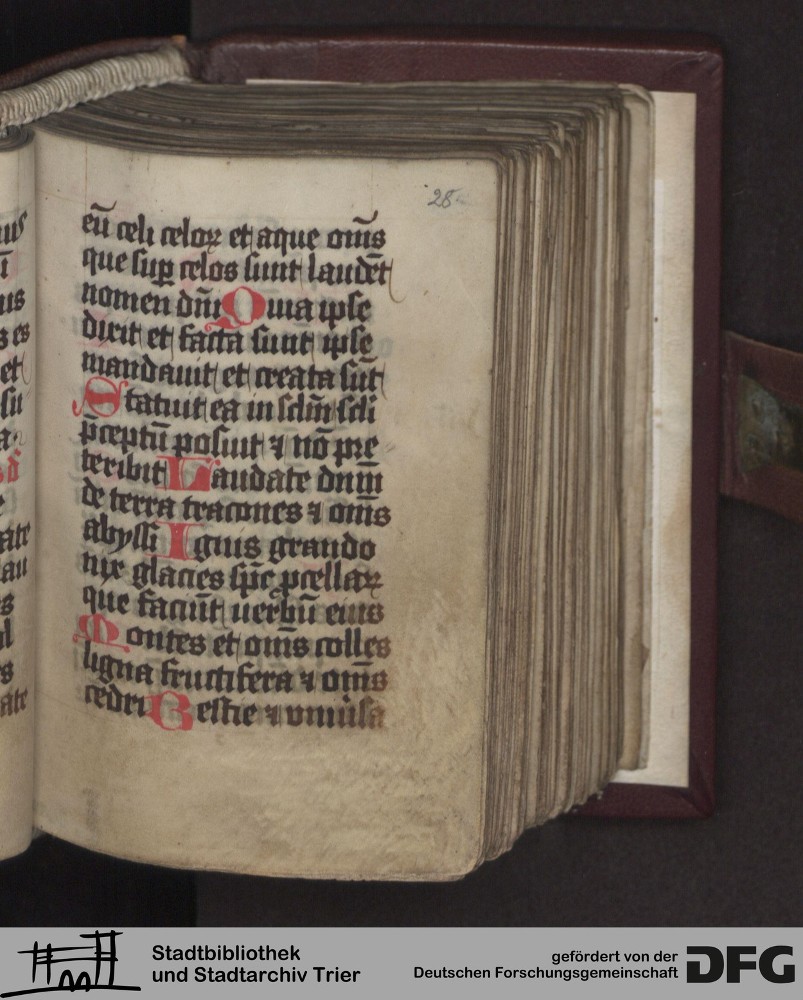 28
eū celi celoꝝ et aque om̄s
que suꝑ celos sunt laudēt
nomen dn̄i Quia ipse
dixit et facta sunt ipse
mandauit et creata sūt
Statuit ea in sclm̄ scli
p̄ceptū posuit ⁊ nō pre
teribit Laudate dnm̄
de terra tracones ⁊ om̄s
abyssi Ignis grando
nix glacies sp̄c ꝓcellaꝝ
que faciūt uerbū eius
Montes et om̄s colles
ligna fructifera ⁊ om̄s
cedri Bestie ⁊ vniūsa
Stadtbibliothek
und Stadtarchiv Trier
gefördert von der
Deutschen Forschungsgemeinschaft
DFG